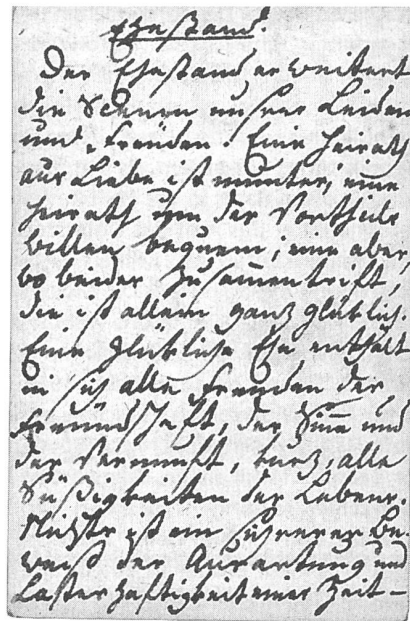 Ehestand.
Der Ehestand erweitert
die Scenen unsrer Leiden
und Freuden. Eine Heirath
aus Liebe ist munter, eine
Heirath um der Vortheile
willen bequem; eine aber,
wo beides zusammentrift,
die ist allein ganz glüklich.
Eine glükliche Ehe enthält
in sich alle Freuden der
Freundschaft, der Sinne und
der Vernunft, kurz, alle
Süßigkeiten des Lebens.
Nichts ist ein sichrerer Be-
weiß der Ausartung und
Lasterhaftigkeit eines Zeit-